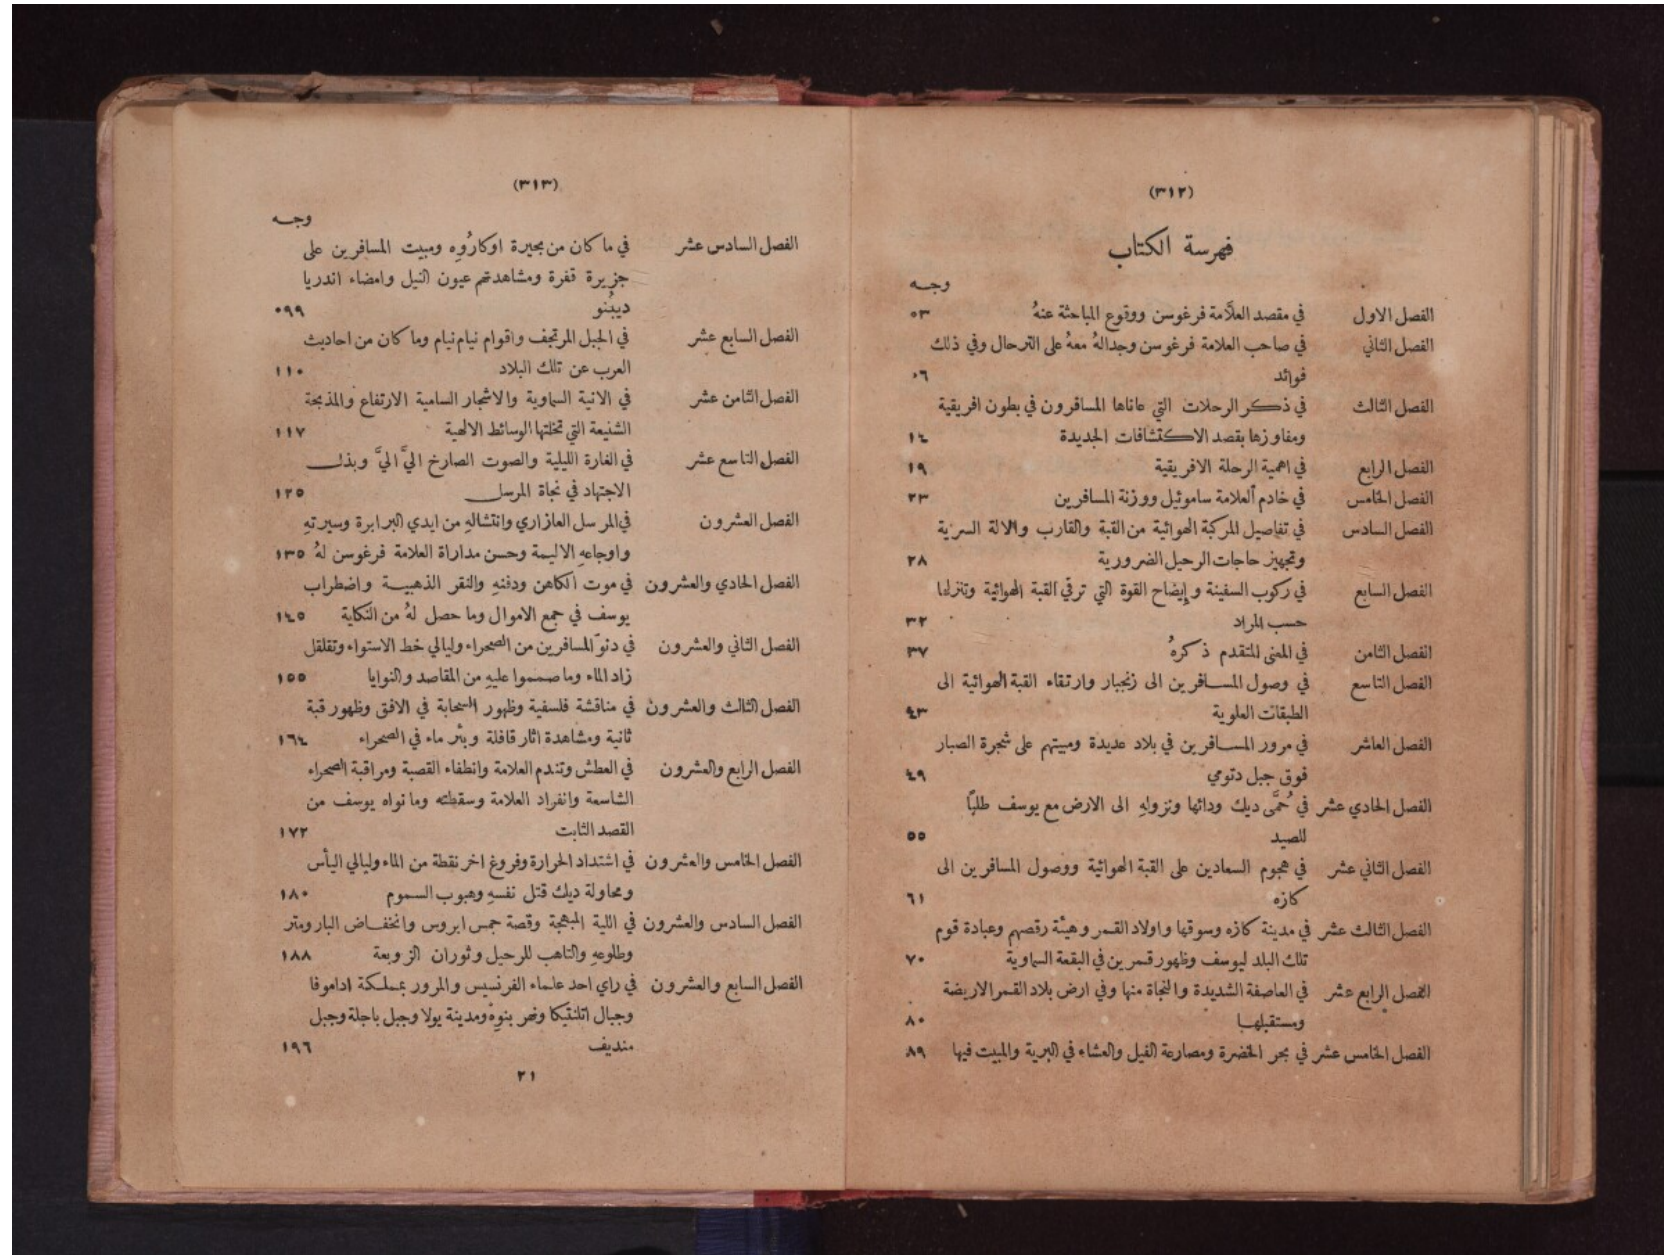 (٣١٢)
فهرسة الكتاب
وجه
الفصل الاول في مقصد العلّامة فرغوسن ووقوع المباحثة عنهُ ٠٣
الفصل الثاني في صاحب العلامة فرغوسن وجدالهُ معهُ على الترحال وفي ذلك
فوائد ٠٦
الفصل الثالث في ذكر الرحلات التي عاناها المسافرون في بطون افريقية
ومفاوزها بقصد الاكتشافات الجديدة ١٤
الفصل الرابع في اهمية الرحلة الافريقية ١٩
الفصل الخامس في خادم العلامة ساموئيل ووزنة المسافرين ٢٣
الفصل السادس في تفاصيل المركبة الهوائية من القبة والقارب والالة السرية
وتجهيز حاجات الرحيل الضرورية ٢٨
الفصل السابع في ركوب السفينة وإيضاح القوة التي ترقي القبة الهوائية وتنزلها
حسب المراد ٣٢
الفصل الثامن في المعنى المتقدم ذكرهُ ٣٧
الفصل التاسع في وصول المسافرين الى زنجبار وارتقاء القبة الهوائية الى
الطبقات العلوية ٤٣
الفصل العاشر في مرور المسافرين في بلاد عديدة ومبيتهم على شجرة الصبار
فوق جبل دتومي ٤٩
الفصل الحادي عشر في حُمَّى ديك ودائها ونزولهِ الى الارض مع يوسف طلبًا
للصيد ٥٥
الفصل الثاني عشر في هجوم السعادين على القبة الهوائية ووصول المسافرين الى
كازه ٦١
الفصل الثالث عشر في مدينة كازه وسوقها واولاد القمر وهيئة رقصهم وعبادة قوم
تلك البلد ليوسف وظهور قمرين في البقعة السماوية ٧٠
الفصل الرابع عشر في العاصفة الشديدة والنجاة منها وفي ارض بلاد القمر الاريضة
ومستقبلها ٨٠
الفصل الخامس عشر في بحر الخضرة ومصارعة الفيل والعشاء في البرية والمبيت فيها ٨٩
(٣١٣)
وجه
الفصل السادس عشر في ما كان من بحيرة اوكارُوِه ومبيت المسافرين على
جزيرة قفرة ومشاهدتهم عيون النيل وامضاء اندريا
ديبُنو ٠٩٩
الفصل السابع عشر في الجبل المرتجف واقوام نيام نيام وما كان من احاديث
العرب عن تلك البلاد ١١٠
الفصل الثامن عشر في الانية السماوية والاشجار السامية الارتفاع والمذبحة
الشنيعة التي تخلتها الوسائط الالهية ١١٧
الفصل التاسع عشر في الغارة الليلية والصوت الصارخ اليَّ اليَّ وبذل
الاجتهاد في نجاة المرسل ١٢٥
الفصل العشرون في المرسل العازاري وانتشالهِ من ايدي البرابرة وسيرتهِ
واوجاعهِ الاليمة وحسن مداراة العلامة فرغوسن لهُ ١٣٥
الفصل الحادي والعشرون في موت الكاهن ودفنهِ والنقر الذهبية واضطراب
يوسف في جمع الاموال وما حصل لهُ من النكاية ١٤٥
الفصل الثاني والعشرون في دنوّ المسافرين من الصحراء وليالي خط الاستواء وتقلقل
زاد الماء وما صمموا عليهِ من المقاصد والنوايا ١٥٥
الفصل الثالث والعشرون في مناقشة فلسفية وظهور السحابة في الافق وظهور قبة
ثانية ومشاهدة اثار قافلة وبئر ماء في الصحراء ١٦٤
الفصل الرابع والعشرون في العطش وتندم العلامة وانطفاء القصبة ومراقبة الصحراء
الشاسعة وانفراد العلامة وسقطته وما نواه يوسف من
القصد الثابت ١٧٢
الفصل الخامس والعشرون في اشتداد الحرارة وفروغ اخر نقطة من الماء وليالي اليأس
ومحاولة ديك قتل نفسهِ وهبوب السموم ١٨٠
الفصل السادس والعشرون في الليلة المبهجة وقصة جمس ابروس وانخفاض البارومتر
وطلوعهِ والتاهب للرحيل وثوران الزوبعة ١٨٨
الفصل السابع والعشرون في راي احد علماء الفرنسيس والمرور بمملكة اداموفا
وجبال اتلنتيكا ونهر بنوِه ومدينة يولا وجبل باجلة وجبل
منديف ١٩٦
٢١